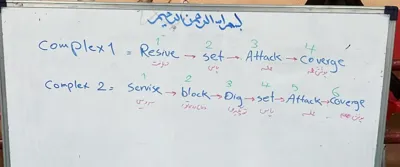 بسم الله الرحمن الرحیم
1 2 3 4
Complex 1 = Resive → set → Attack → Coverge
1 2 3 4 5 6
Complex 2 = Servise → block → Dig → set → Attack → Coverge